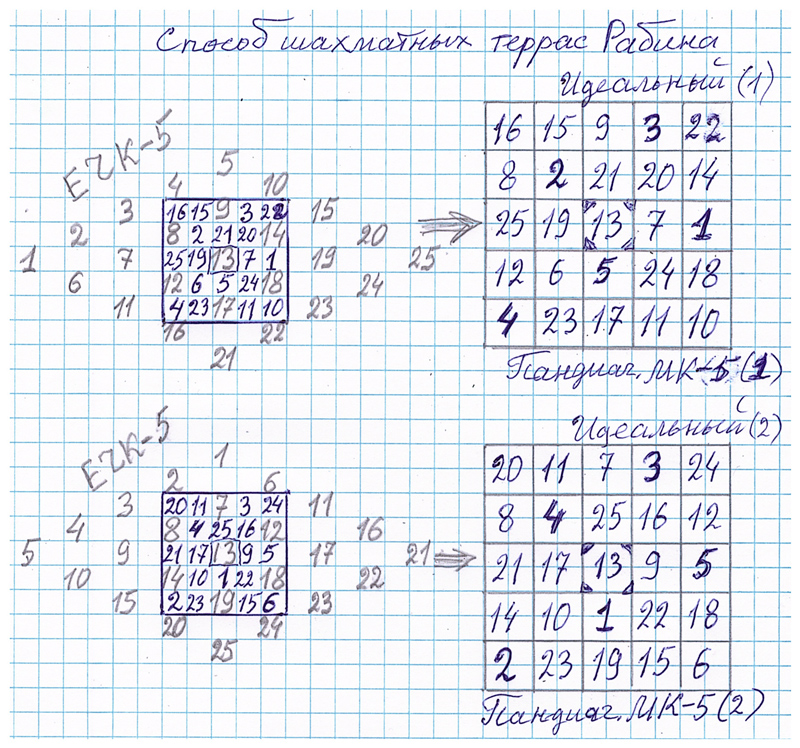 Способ шахматных террас Рабина
Идеальный (1)
ЕЧК-5
5
4 10
3 16 15 9 3 22 15
2 8 2 21 20 14 20
1 7 25 19 13 7 1 19 25
6 12 6 5 24 18 24
11 4 23 17 11 10 23
16 22
21
16 15 9 3 22
8 2 21 20 14
25 19 13 7 1
12 6 5 24 18
4 23 17 11 10
Пандиаг. МК-5 (1)
Идеальный (2)
ЕЧК-5
1
2 6
3 20 11 7 3 24 11
4 8 4 25 16 12 16
5 9 21 17 13 9 5 17 21
10 14 10 1 22 18 22
15 2 23 19 15 6 23
20 24
25
20 11 7 3 24
8 4 25 16 12
21 17 13 9 5
14 10 1 22 18
2 23 19 15 6
Пандиаг. МК-5 (2)